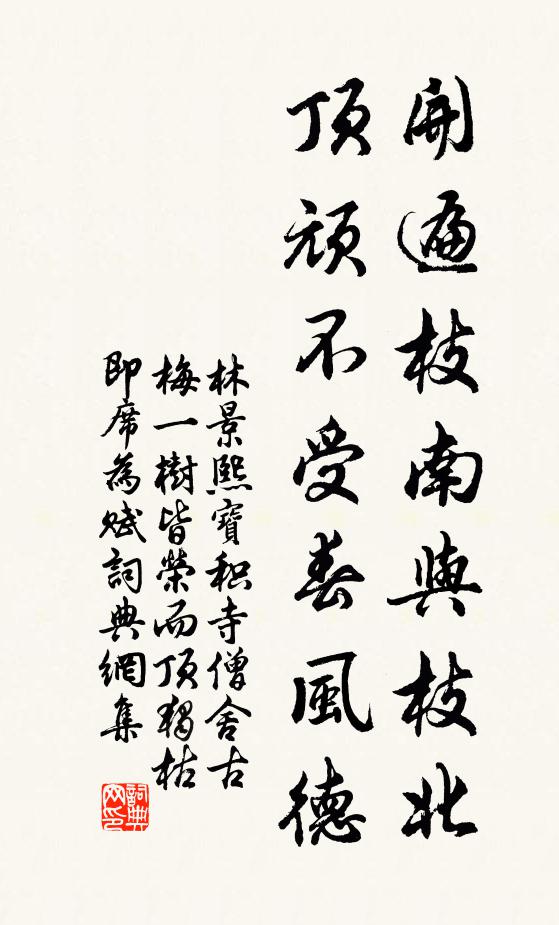 開遍枝南與枝北
頂頑不受春風德
林景熙寶積寺僧舍古
梅一樹皆榮而頂獨枯
即席為賦詞典網集
詞典
网印